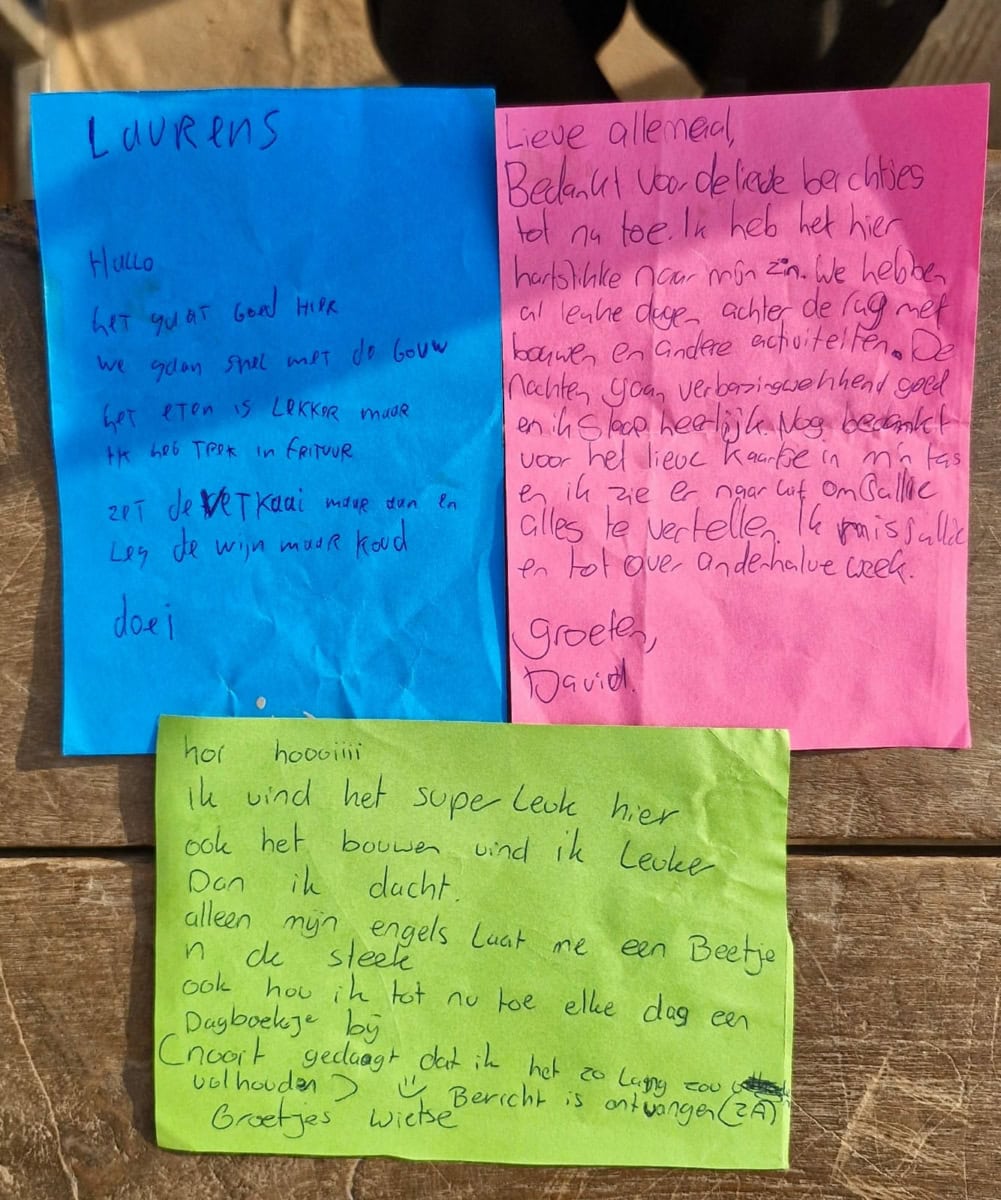 LAURENS
Hallo
het gaat goed HIER
we gaan snel met de bouw
het eten is LEKKER maar
ik heb TREK in FRITUUR
zet de VETKaai maar aan en
Leg de wijn maar koud
doei
Lieve allemaal,
Bedankt voor de lieve berichtjes
tot nu toe. Ik heb het hier
naar mijn zin. We hebben
al leuke dagen achter de rug met
bouwen en andere activiteiten. De
nachten gaan verbazingwekkend goed
en ik slaap heerlijk. Nog bedankt
voor het lieve kaartje in m'n tas
en ik zie er naar uit om jullie
alles te vertellen. Ik mis jullie
en tot over anderhalve week.
groeten,
David.
hoi hoooiiii
ik vind het super Leuk hier
ook het bouwen vind ik Leuker
Dan ik dacht.
alleen mijn engels Laat me een Beetje
n de steek
ook hou ik tot nu toe elke dag een
Dagboekje bij
(nooit gedaagt dat ik het zo Lang zou
volhouden) Bericht is ontvangen (ZA)
Groetjes Wietse